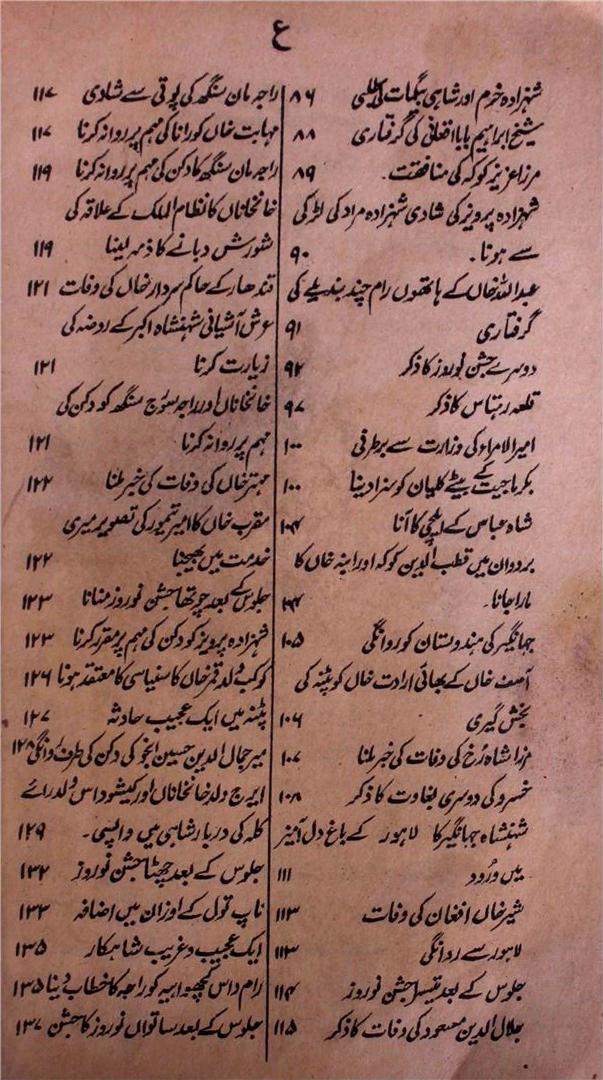 ع
شہزادہ خرم اور شاہی بیگمات کی طلبی ۸۶
شیخ ابراہیم بابا افغانی کی گرفتاری ۸۸
مرزا عزیز کوکہ کی منافقت۔ ۸۹
شہزادہ پرویز کی شادی شہزادہ مراد کی لڑکی
سے ہونا۔ ۹۰
عبداللہ خاں کے ہاتھوں رام چند بندیلے کی
گرفتاری ۹۱
دوسرے جشن نوروز کا ذکر ۹۲
قلعہ رہتاس کا ذکر ۹۷
امیرالامراء کی وزارت سے برطرفی ۱۰۰
بکرماجیت کے بیٹے کلیان کو سزا دینا ۱۰۰
شاہ عباس کے ایلچی کا آنا ۱۰۴
بردوان میں قطب الدین کوکہ اور ابنہ خاں کا
مارا جانا۔ ۱۰۴
جہانگیر کی ہندوستان کو روانگی ۱۰۵
آصف خاں کے بھائی ارادت خاں کو پٹنہ کی
بخشی گیری ۱۰۶
مرزا شاہ رخ کی وفات کی خبر ملنا ۱۰۷
خسرو کی دوسری بغاوت کا ذکر ۱۰۸
شہنشاہ جہانگیر کا لاہور کے باغ دل آمیز
میں ورود ۱۱۱
شیر خاں افغان کی وفات ۱۱۳
لاہور سے روانگی ۱۱۳
جلوس کے بعد تیسرا جشن نوروز ۱۱۴
جلال الدین مسعود کی وفات کا ذکر ۱۱۵
راجہ مان سنگھ کی پوتی سے شادی ۱۱۷
مہابت خاں کو رانا کی مہم پر روانہ کرنا ۱۱۷
راجہ مان سنگھ کا دکن کی مہم پر روانہ کرنا ۱۱۹
خانخاناں کا نظام الملک کے علاقہ کی
شورش دبانے کا ذمہ لینا ۱۱۹
قندھار کے حاکم سردار خاں کی وفات ۱۲۱
عرش آشیانی شہنشاہ اکبر کے روضہ کی
زیارت کرنا ۱۲۱
خانخاناں اور راجہ سورج سنگھ کو دکن کی
مہم پر روانہ کرنا ۱۲۱
مہتر خاں کی وفات کی خبر ملنا ۱۲۲
مقرب خاں کا امیر تیمور کی تصویر میری
خدمت میں بھیجنا ۱۲۲
جلوس کے بعد چوتھا جشن نوروز منانا ۱۲۳
شہزادہ پرویز کو دکن کی مہم پر مقرر کرنا ۱۲۳
کوکب ولد قمر خاں کا سنیاسی کا معتقد ہونا ۱۲۶
پٹنہ میں ایک عجیب حادثہ ۱۲۷
میر جمال الدین حسین انجو کی دکن کی طرف روانگی ۱۲۸
ایرج ولد خانخاناں اور کیشو داس ولد رائے
کلہ کی دربار شاہی میں واپسی۔ ۱۲۹
جلوس کے بعد چھٹا جشن نوروز ۱۳۲
ناپ تول کے اوزان میں اضافہ ۱۳۳
ایک عجیب و غریب شاہکار ۱۳۵
رام داس کچھواہیہ کو راجہ کا خطاب دینا ۱۳۵
جلوس کے بعد ساتواں نوروز کا جشن ۱۳۷